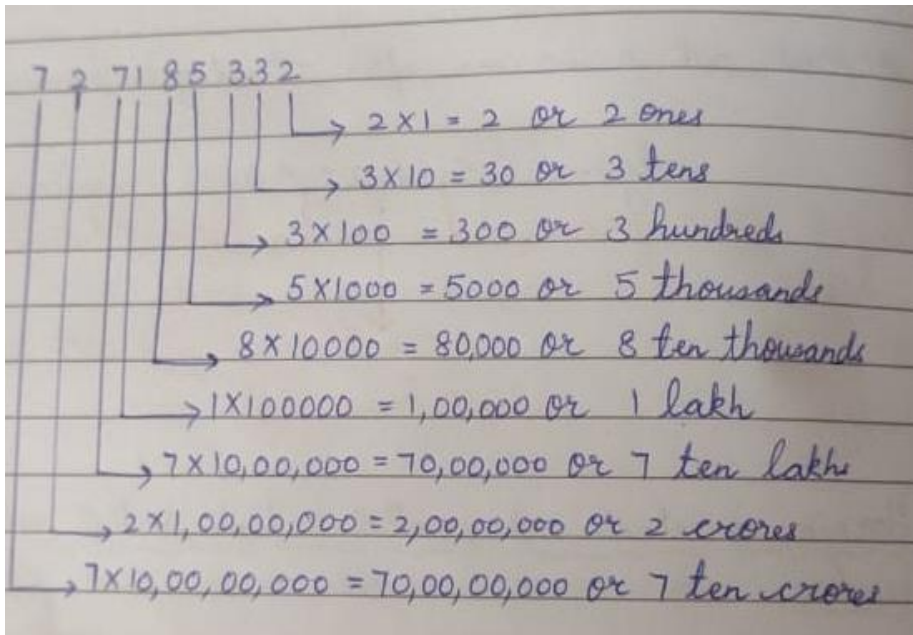 7 2 71 85 332
2×1 = 2 or 2 ones
3×10 = 30 or 3 tens
3×100 = 300 or 3 hundreds
5×1000 = 5000 or 5 thousands
8×10000 = 80,000 or 8 ten thousands
1×100000 = 1,00,000 or 1 lakh
7×10,00,000 = 70,00,000 or 7 ten lakhs
2×1,00,00,000 = 2,00,00,000 or 2 crores
7×10,00,00,000 = 70,00,00,000 or 7 ten crores